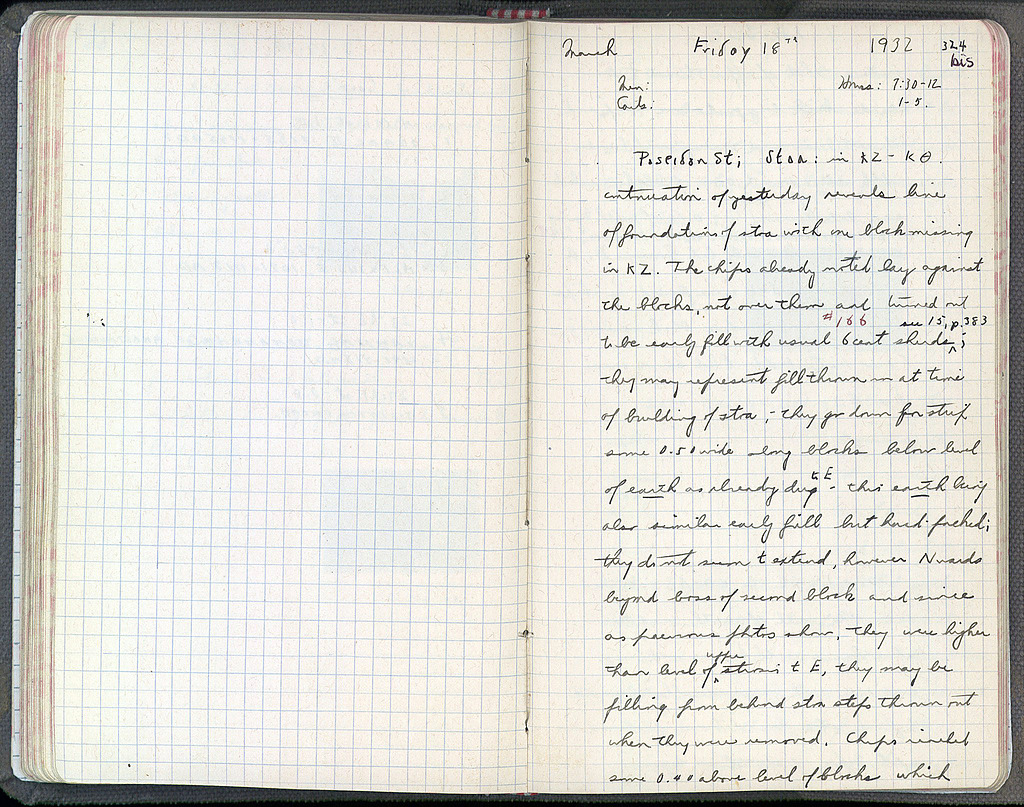 March Friday 18TH 1932 324
bis
Men: Hours: 7:30-12
Carts: 1-5.
Poseidon St; Stoa: in KZ - KΘ.
continuation of yesterday reveals line
of foundations of stoa with one block missing
in KZ. The chips already noted lay against
the blocks, not over them and turned out
#166 see 15, p.383
to be early fill with usual 6 cent sherds ^;
they may represent fill thrown in at time
of building of stoa; - they go down for strip
some 0.50 wide along blocks below level
of earth as already dug t E - this earth being
also similar early fill but hard-packed;
they do not seem t extend, however Nwards
beyond base of second block and since
as previous photos show, they were higher
than level of ^ upper strosis t E, they may be
filling from behind stoa steps thrown out
when they were removed. Chips reached
some 0.40 above level of blocks which